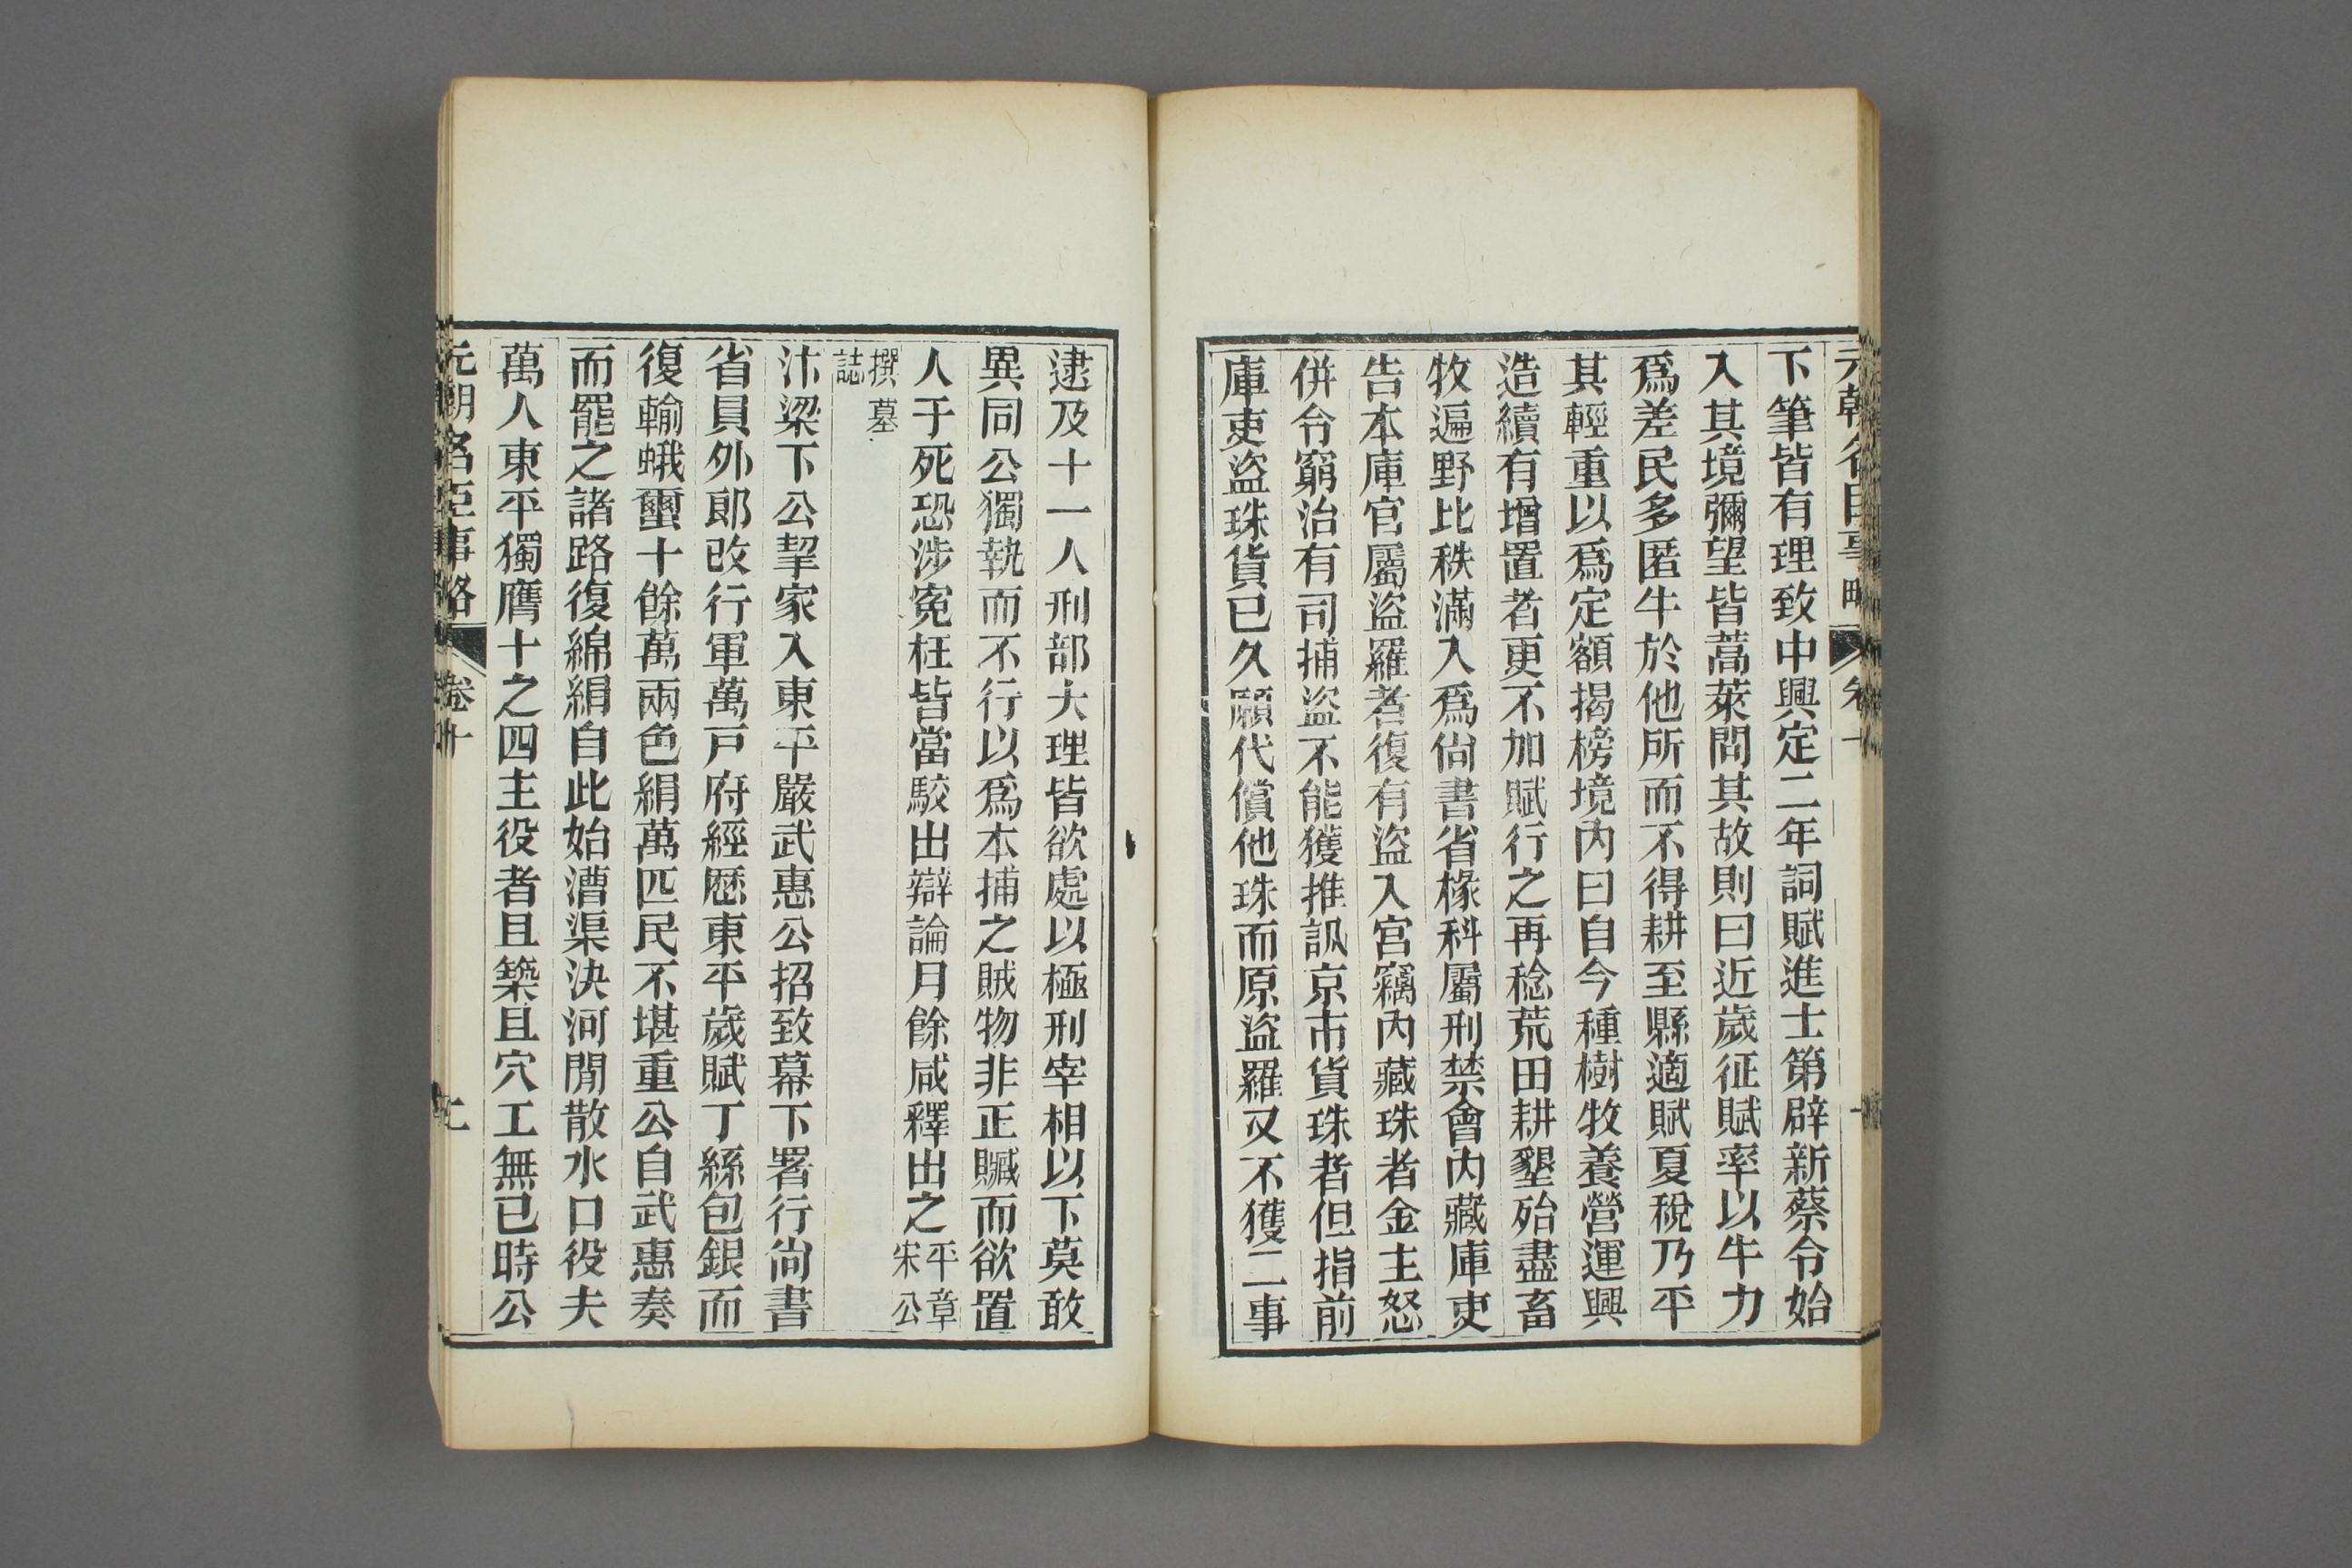 下筆皆有理致中興定二年詞賦進士第辟新蔡令始
入其境彌望皆蒿萊問其故則曰近歲征賦率以牛力
爲差民多匿牛於他所而不得耕至縣適賦夏稅乃平
其輕重以爲定額揭榜境內曰自今種樹牧養營運興
造續有增置者更不加賦行之再稔荒田耕墾殆盡畜
牧遍野比秩滿入爲尙書省椽科屬刑禁會內藏庫吏
告本庫官屬盜羅者復有盜入宮竊內藏珠者金主怒
併令窮治有司捕盜不能獲推訊京市貨珠者但指前
庫吏盜珠貨已久願代償他珠而原盜羅又不獲二事
逮及十一人刑部大理皆欲處以極刑宰相以下莫敢
異同公獨執而不行以爲本捕之賊物非正贓而欲置
人于死恐涉寃枉皆當駮出辯論月餘咸釋出之平章宋公
撰墓誌
汴梁下公挈家入東平嚴武惠公招致幕下署行尙書
省員外郞改行軍萬戸府經歷東平歲賦丁絲包銀而
復輸蛾壐十餘萬兩色絹萬匹民不堪重公自武惠奏
而罷之諸路復綿絹自此始漕渠決河閒散水口役夫
萬人東平獨膺十之四主役者且築且穴工無已時公
元朝名臣事略 卷十 二